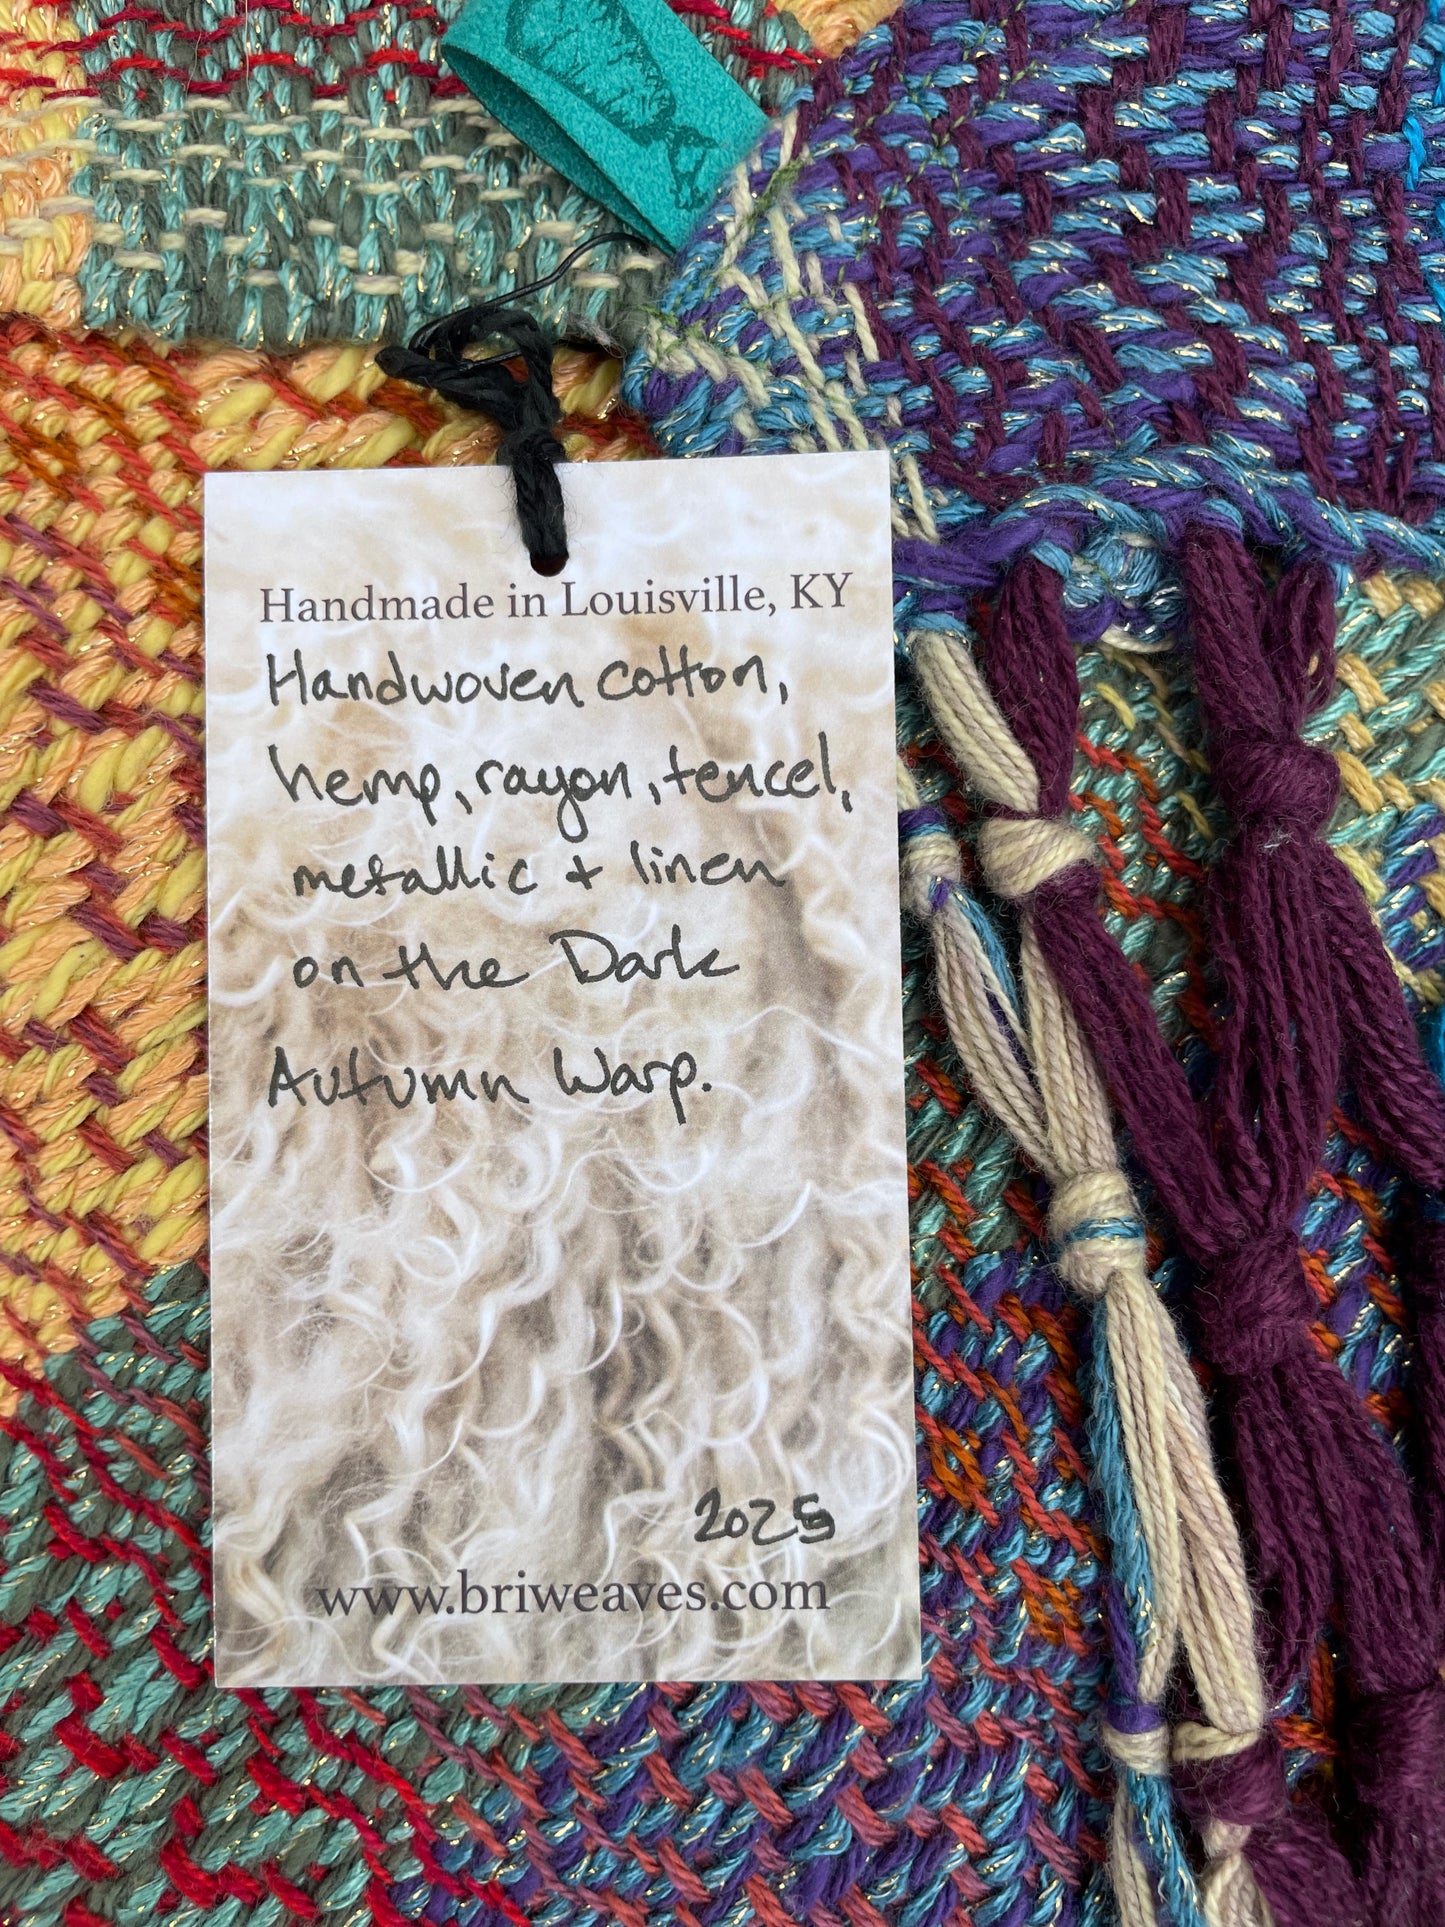 Handmade in Louisville, KY
Handwoven cotton,
hemp, rayon, tencel,
metallic + linen
on the Dark
Autumn Warp.
2025
www.briweaves.com